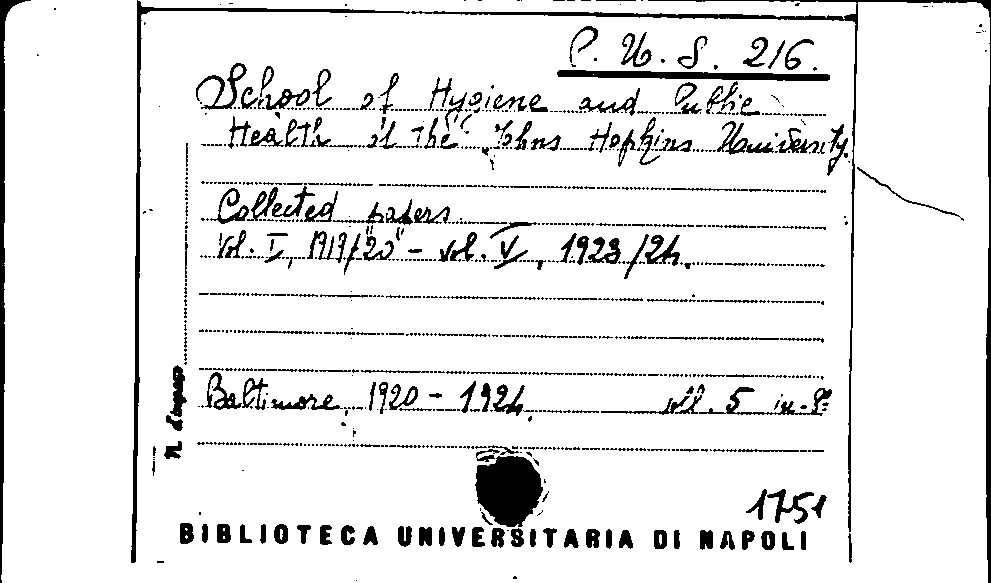 P. U. S. 216.
School of Hygiene and Public
Health of the Johns Hopkins University.
Collected papers
Vol. I, 1919/20 - vol. V, 1923/24.
Baltimore, 1920 - 1924. voll. 5 in-8°
N. d'ingresso
1751
BIBLIOTECA UNIVERSITARIA DI NAPOLI